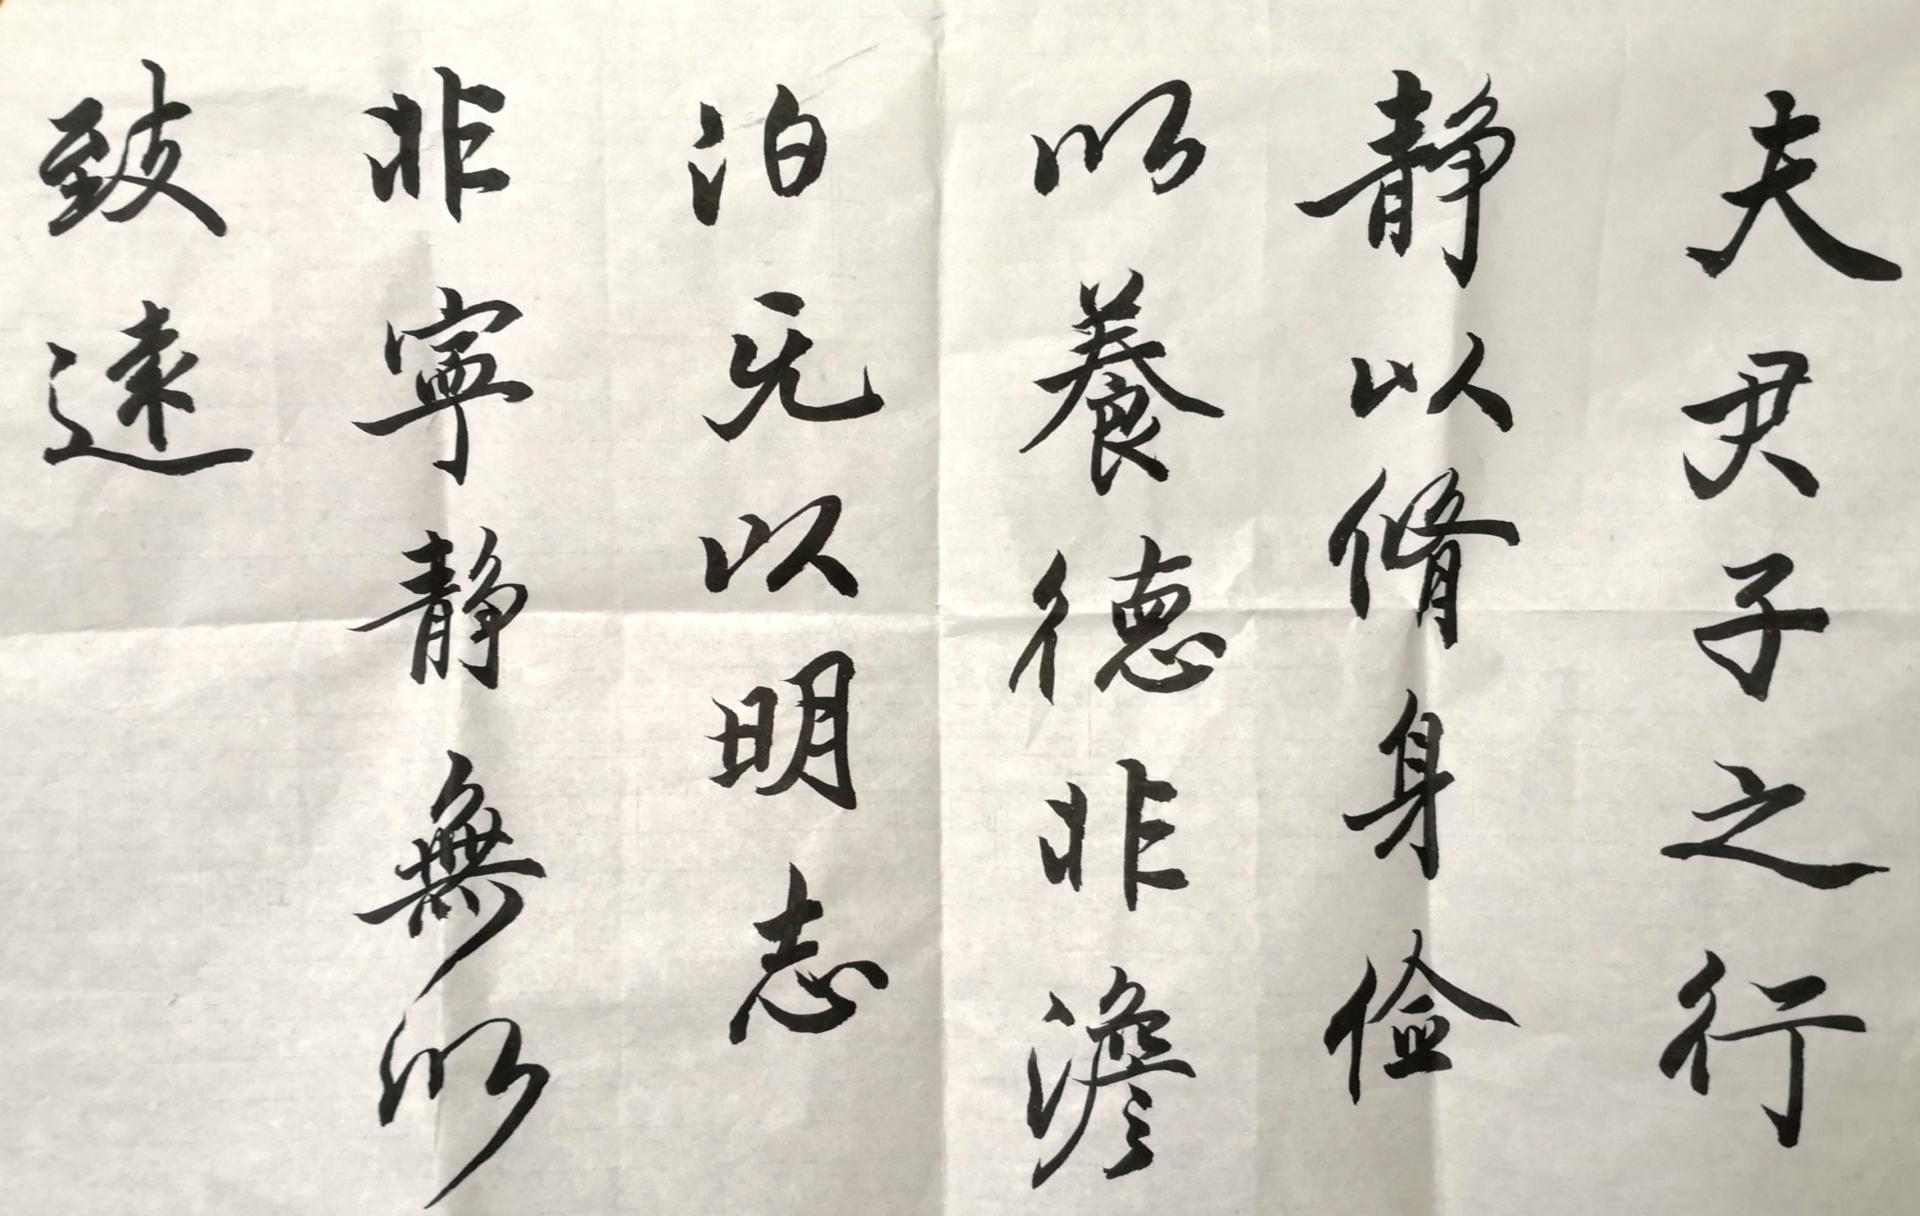 夫君子之行
静以脩身儉
以養德非澹
泊无以明志
非寧静無以
致遠